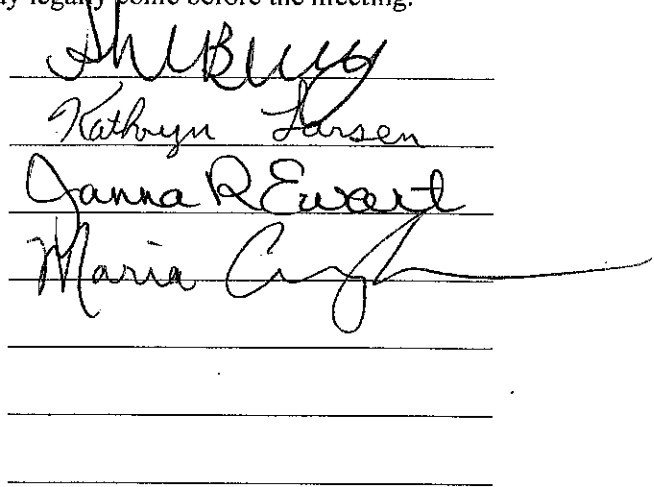 legally come before the meeting.
Kathryn Larsen
Janna R Ewart
Maria